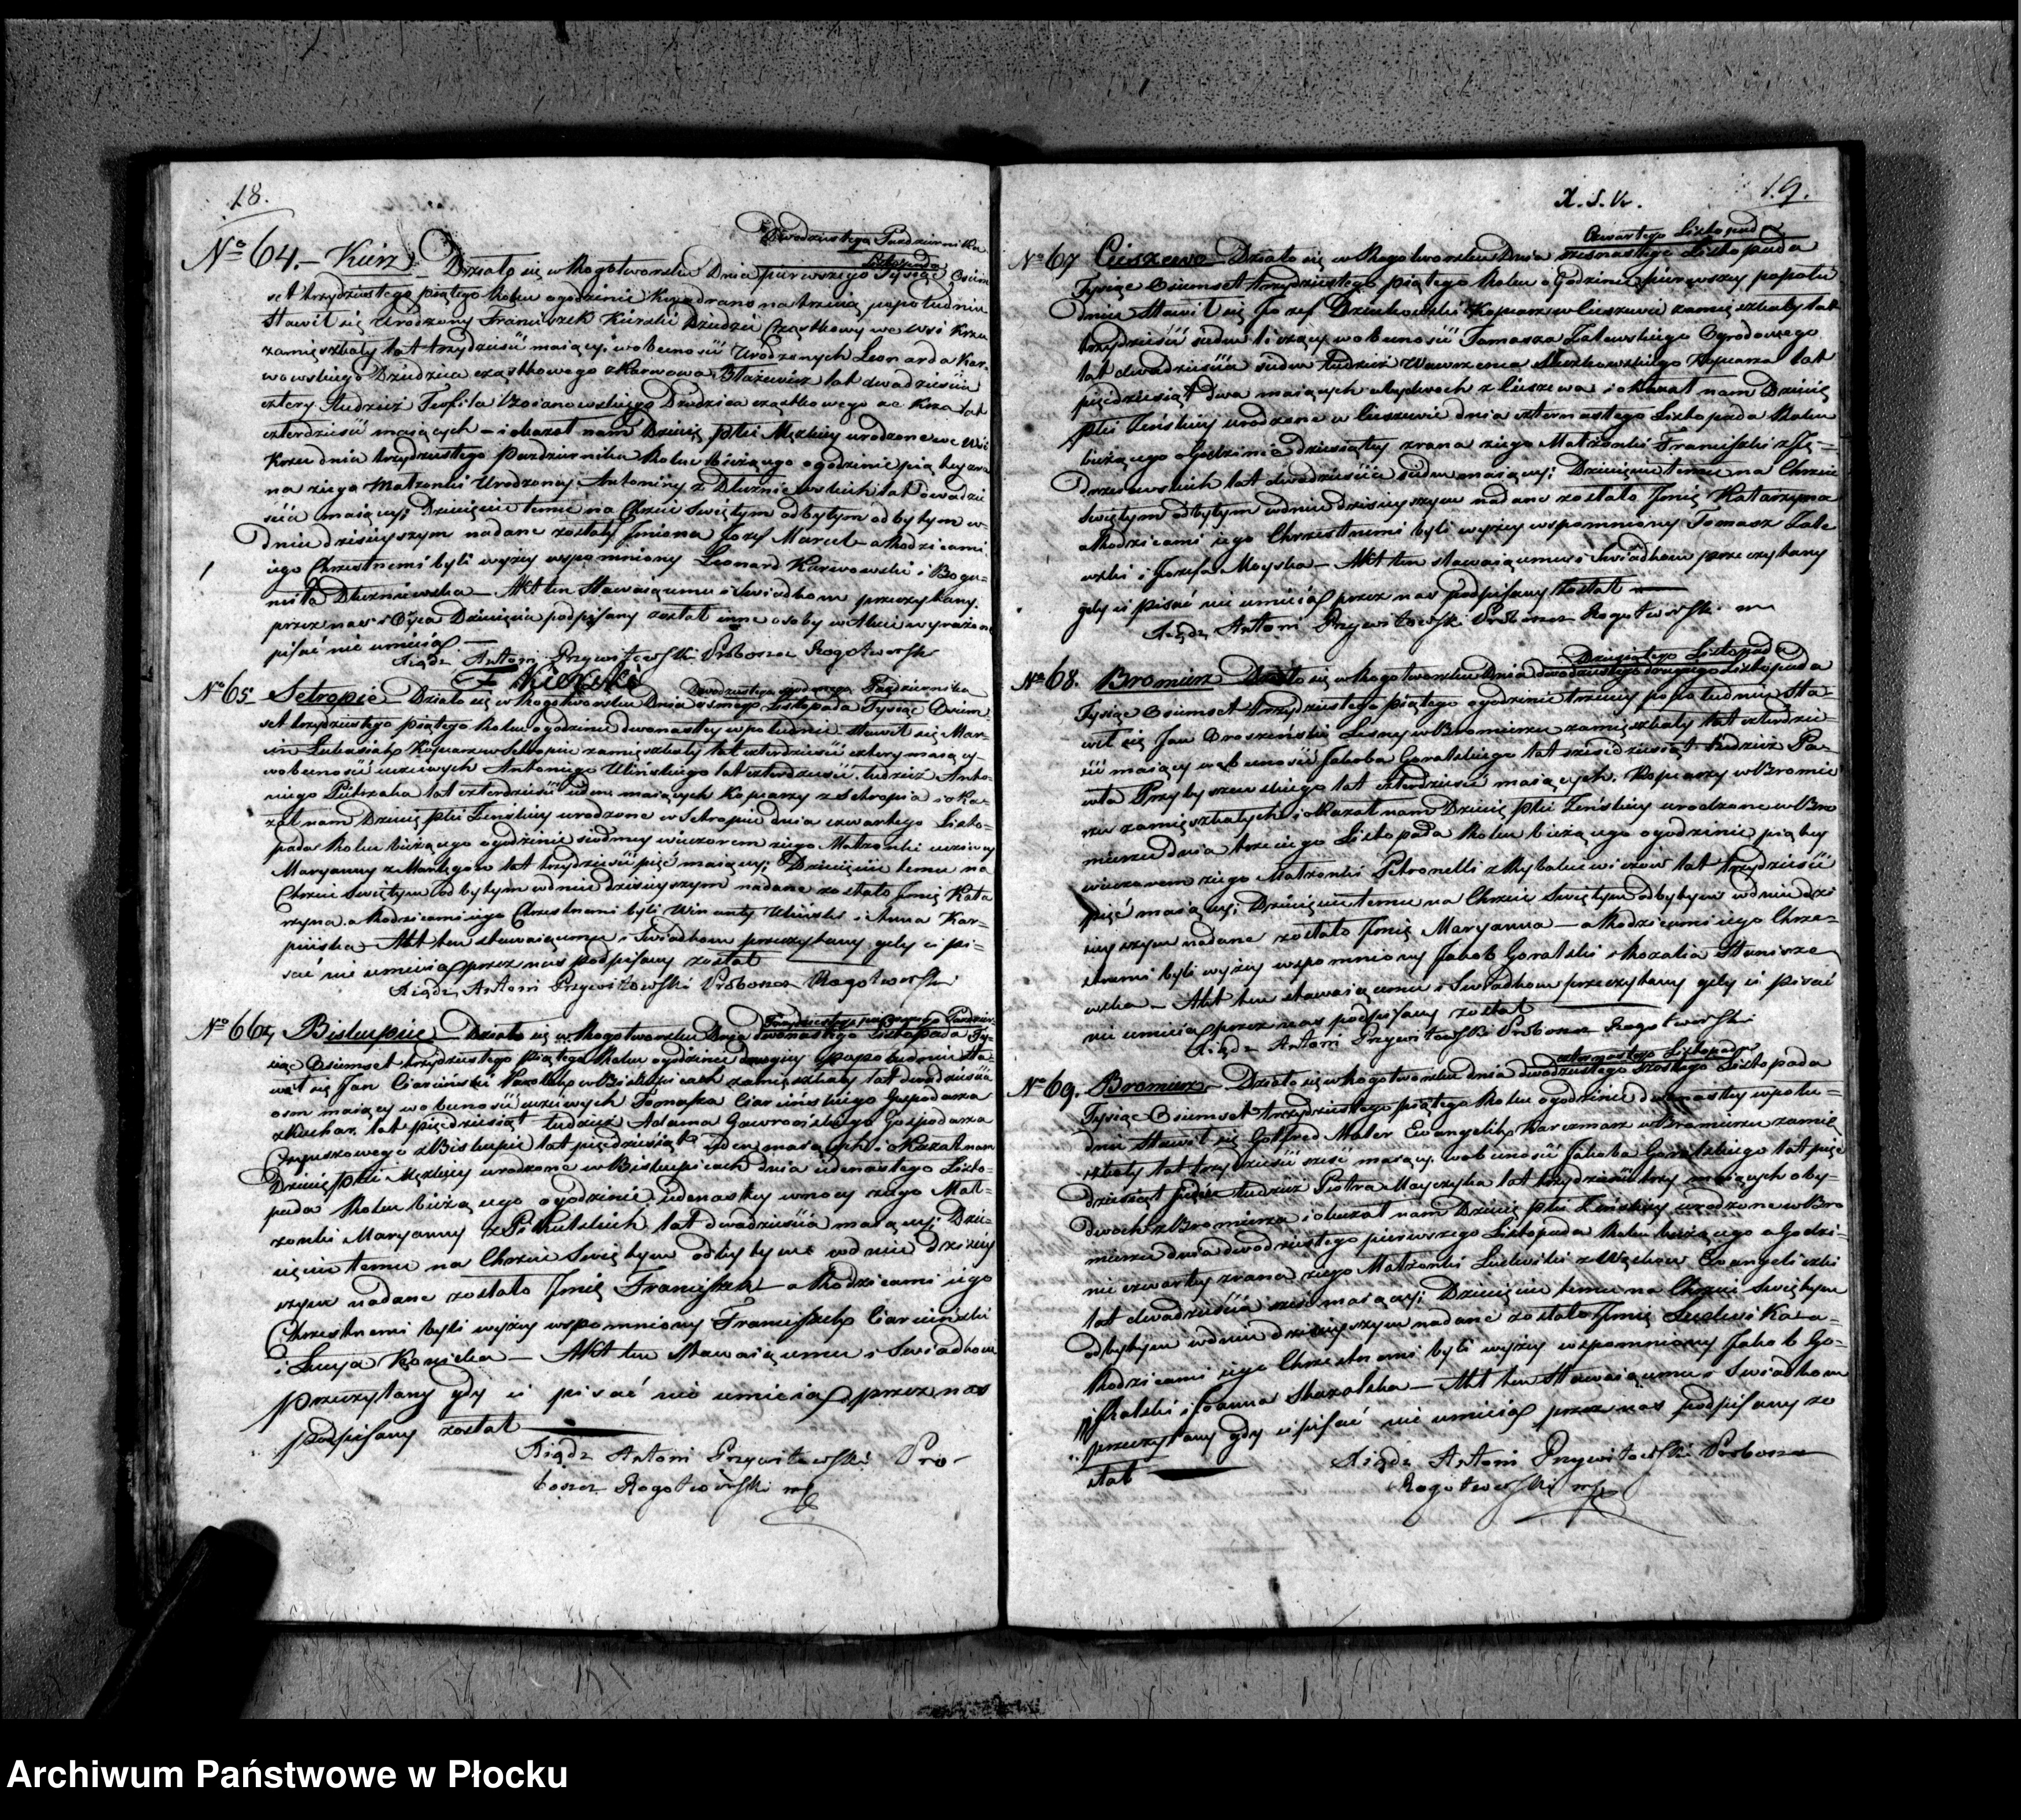 18.
Dwudziestego Października
No 64. Kierz Działo się w Rogotworsku Dnia pierwszego Listopada Tysiąc Osiem
set trzydziestego piątego Roku o godzinie kwadrans na trzecią popołudniu
Stawił się Urodzony Franciszek Kierski Dziedzic Cząstkowy we wsi Krzu
zamięszkały lat trzydzieści maiący, w obecności Urodzonych Leonarda Kar-
wowskiego Dziedzica cząstkowego z Karwowa lat dwadzieścia
cztery tudzież Teofila Dziedzica cząstkowego ze Krza lat
czterdzieści maiących i okazał nam Dziecię płci Męzkiey urodzone we Wsi
Krzu dnia trzydziestego Października Roku bieżącego o godzinie piątey zra
na z iego Małżonki Urodzoney Antoniny z Dłużniewskich lat dwadzie
ścia maiącey; Dziecięciu temu na Chrzcie Swiętym odbytym odbytym w
Dniu dzisieyszym nadane zostały Imiona Jozef Marcel a Rodzicami
iego Chrzestnemi byli wyżey wspomniony Leonard Karwowski i Bogu-
miła Dłużniewska Akt ten Stawaiącemu i Swiadkom przeczytany
przez nas i Oyca Dziecięcia podpisany został inne osoby w Akcie wyrażone
pisać nie umieią
Xiądz Antoni Przywitowski Proboszcz Rogotworski
Kierski
Dwudziestego Października
No 65 Setropie Działo się w Rogotworsku Dnia osmego Listopada Tysiąc Osiem
set trzydziestego piątego Roku o godzinie dwunastey w południe Stawił się Mar-
cin Łukasiak Kopiarz w Setropiu zamięszkały lat czterdzieści cztery maiący
w obecności uczciwych Antoniego Ulińskiego lat czterdzieści tudzież Anto-
niego lat czterdzieści ieden maiących Kopiarzy z Setropia i oka-
zał nam Dziecię płci Żeńskiey urodzone w Setropiu dnia czwartego Listo-
pada Roku bieżącego o godzinie siodmey wieczorem z iego Małżonki uczciwey
Maryanny z lat trzydzieści pięć maiącey; Dziecięciu temu na
Chrzcie Swiętym odbytym w dniu dzisieyszym nadane zostało Imię Kata
rzyna a Rodzicami iego Chrzestnemi byli Wincenty Uliński i Anna Kar-
pińska Akt ten stawaiącemu i Swiadkom przeczytany gdy ci pi-
sać nie umieią przez nas podpisany został
Xiądz Antoni Przywitowski Proboszcz Rogotworski
Trzydziestego pierwszego Paździer.
No 66 Biskupice Działo się w Rogotworsku Dnia dwunastego Listopada Ty-
siąc Osiemset trzydziestego piątego Roku o godzinie drugiey popołudniu Sta
wił się Jan Ciarciński Parobek w Biskupicach zamięszkały lat dwadzieścia
osm maiący w obecności uczciwych Tomasza Ciarcińskiego Gospodarza
z Kuchar lat pięćdziesiąt tudzież Adama Gawrońskiego Gospodarza
Czynszowego z Biskupic lat pięćdziesiąt ieden maiących i Okazał nam
Dziecię płci Męzkiey urodzone w Biskupicach dnia iedenastego Listo-
pada Roku bieżącego o godzinie iedenastey w nocy z iego Mał-
żonki Maryanny z lat dwadzieścia maiącey; Dzie-
cięciu temu na Chrzcie Swiętym odbytym w dniu dzisiey
szym nadane zostało Imię Franciszek a Rodzicami iego
Chrzestnemi byli wyżey wspomniony Franciszek Ciarciński
i Łucya Akt ten Stawaiącemu i Swiadkom
przeczytany gdy ci pisać nie umieią przez nas
podpisany został
Xiądz Antoni Przywitowski Pro-
boszcz Rogotworski
19.
X. S. W.
Czwartego Listopada
No 67 Cieszewo Działo się w Rogotworsku Dnia szesnastego Listopada
Tysiąc Osiemset trzydziestego piątego Roku o Godzinie pierwszey popołu
dniu Stawił się Jozef Dzienkowski Kopiarz w Cieszewie zamięszkały lat
trzydzieści siedm liczący w obecności Tomasza Zalewskiego Ogrodowego
lat dwadzieścia siedm tudzież Wawrzeńca Kopiarza lat
pięćdziesiąt dwa maiących obydwoch z Cieszewa i okazał nam Dziecię
płci Żeńskiey urodzone w Cieszewie dnia czternastego Listopada Roku
bieżącego o Godzinie dziesiątey zrana z iego Małżonki Franciszki z Ję-
drzeiewskich lat dwadzieścia siedm maiącey; Dziecięciu temu na Chrzcie
Swiętym odbytym w dniu dzisieyszym nadane zostało Imię Katarzyna
a Rodzicami iego Chrzestnemi byli wyżey wspomniony Tomasz Zale
wski i Jozefa Akt ten stawaiącemu i Swiadkom przeczytany
gdy ci pisać nie umieią przez nas podpisany został
Xiądz Antoni Przywitowski Proboszcz Rogotworski
Dziesiątego Listopada
No 68. Bromierz Działo się w Rogotworsku Dnia dwudziestego drugiego Listopada
Tysiąc Osiemset trzydziestego piątego o godzinie trzeciey popołudniu Sta-
wił się Jan Leśny w Bromierzu zamięszkały lat czterdzie-
ści maiący w obecności Jakoba Goralskiego lat sześćdziesiąt tudzież Pa-
wła Przybyszewskiego lat czterdzieści maiących Kopiarzy w Bromie
rzu zamięszkałych i okazał nam Dziecię płci Żeńskiey urodzone w Bro
mierzu dnia trzeciego Listopada Roku bieżącego o godzinie piątey
wieczorem z iego Małżonki Petronelli z lat trzydzieści
pięć maiącey; Dziecięciu temu na Chrzcie Swiętym odbytym w dniu dzi
sieyszym nadane zostało Imię Maryanna a Rodzicami iego Chrze-
stnemi byli wyżey wspomniony Jakob Goralski i Rozalia Staniszewska
wska Akt ten stawaiącemu i Swiadkom przeczytany gdy ci pisać
nie umieią przez nas podpisany został
Xiądz Antoni Przywitowski Proboszcz Rogotworski
czternastego Listopada
No 69. Bromierz Działo się w Rogotworsku dnia dwudziestego szostego Listopada
Tysiąc Osiemset trzydziestego piątego Roku o godzinie dwunastey w połu-
dnie Stawił się Gotfred Ewangelik Karczmarz w Bromierzu zamię
szkały lat trzydzieści sześć maiący, w obecności Jakoba Goralskiego lat pięć
dziesiąt tudzież Piotra lat trzydzieści trzy maiących oby-
dwoch z Bromierza i okazał nam Dziecię płci Żeńskiey urodzone w Bro
mierzu dnia dwudziestego pierwszego Listopada Roku bieżącego o Godzi-
nie czwartey zrana z iego Małżonki Ludwiki Ewangeliczki
lat dwadzieścia sześć maiącey; Dziecięciu temu na Chrzcie Swiętym
odbytym w dniu dzisieyszym nadane zostało Imię Ludwika a-
Rodzicami iego Chrzestnemi byli wyżey wspomniony Jakob Go-
ralski i Joanna Akt ten Stawaiącemu i Swiadkom
przeczytany gdy ci pisać nie umieią przez nas podpisany zo
stał
Xiądz Antoni Przywitowski Proboszcz
Rogotworski
Archiwum Państwowe w Płocku